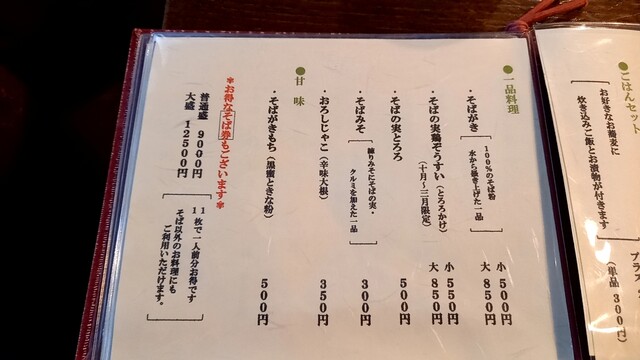 ●ごはんセット
お好きなお蕎麦に
炊き込みご飯とお漬物が付きます
プラス
(単品 300円)
●一品料理
・そばがき
100%のそば粉
水から掻き上げた一品
小 500円
大 850円
・そばの実鶏ぞうすい(とろろかけ)
(十月～三月限定)
小 550円
大 850円
・そばの実とろろ
500円
・そばみそ
練りみそにそばの実・
クルミを加えた一品
300円
・おろしじゃこ(辛味大根)
350円
●甘 味
・そばがきもち(黒蜜ときな粉)
500円
*お得なそば券もございます*
普通盛 9000円
大盛 12500円
11枚で一人前分お得です
そば以外のお料理にも
ご利用いただけます。